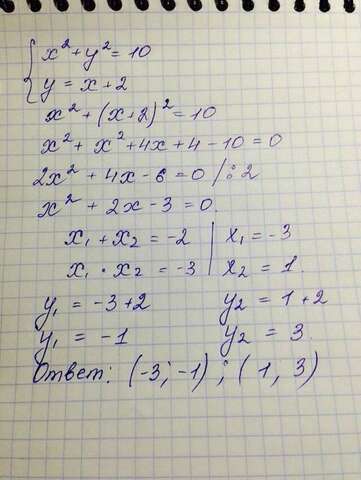 x² + y² = 10
y = x + 2
x² + (x+2)² = 10
x² + x² + 4x + 4 - 10 = 0
2x² + 4x - 6 = 0 /:2
x² + 2x - 3 = 0.
x₁ + x₂ = -2 | x₁ = -3
x₁ · x₂ = -3 | x₂ = 1.
y₁ = -3+2 y₂ = 1 + 2
y₁ = -1 y₂ = 3.
Ответ: (-3; -1) ; (1, 3)